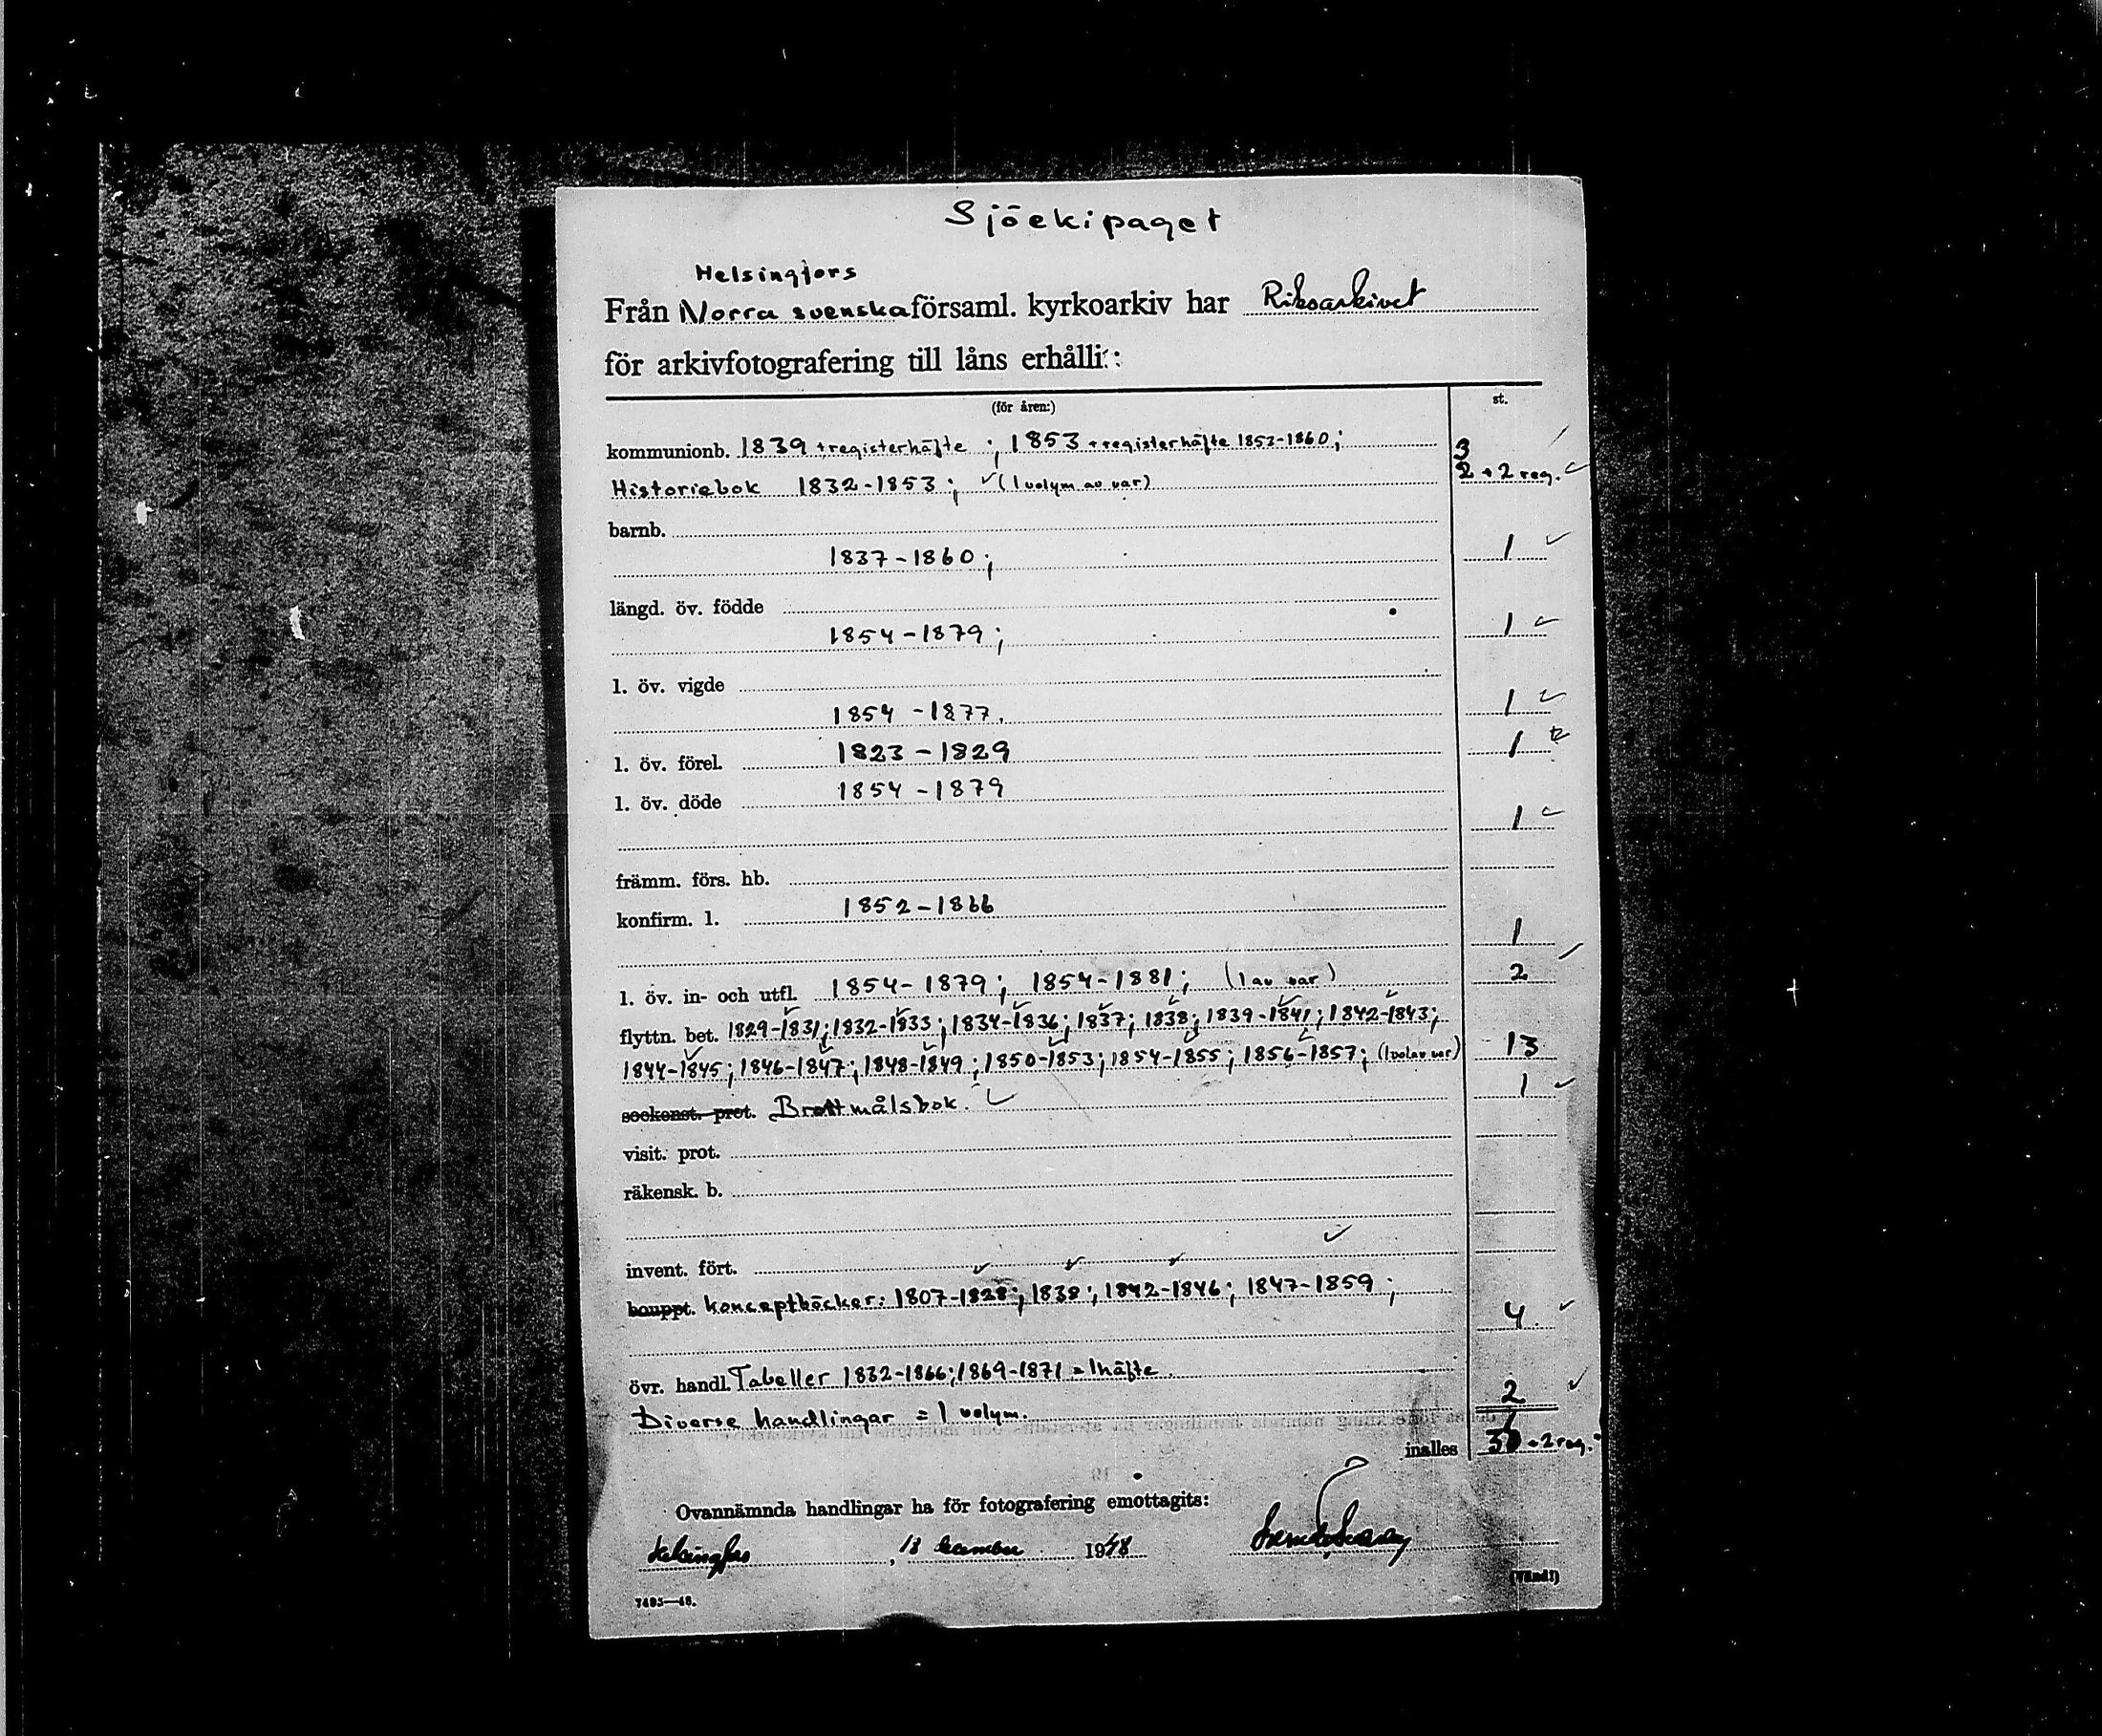 Sjöekipaget
Helsingfors
Från Norra svenska församl. kyrkoarkiv har Riksarkivet
för arkivfotografering till låns erhålli:
(för åren:) st.
kommunionb. 1839 + registerhäfte ; 1853 + registerhäfte 1853-1860 ; 3
Historiebok 1832-1853 ; (1 volym av var) 2 + 2 reg.
barnb.
1837-1860 ; 1
längd. öv. födde
1854-1879 ; 1
l. öv. vigde
1854-1877. 1
l. öv. förel. 1823-1829 1
l. öv. döde 1854-1879
1
främm. förs. hb.
konfirm. l. 1852-1866
1
l. öv. in- och utfl. 1854-1879 ; 1854-1881 ; (1 av var) 2
flyttn. bet. 1829-1831 ; 1832-1833 ; 1834-1836 ; 1837 ; 1838 ; 1839-1841 ; 1842-1843 ;
1844-1845 ; 1846-1847 ; 1848-1849 ; 1850-1853 ; 1854-1855 ; 1856-1857 ; (1 vol av var) 13
sockenst. prot. Brottmålsbok. 1
visit. prot.
räkensk. b.
invent. fört.
bouppt. Konceptböcker: 1807-1828 ; 1838 ; 1842-1846 ; 1847-1859 ;
4
övr. handl. Tabeller 1832-1866 ; 1869-1871 = 1 häfte.
Diverse handlingar = 1 volym. 2
inalles + 2 reg.
Ovannämnda handlingar ha för fotografering emottagits:
Helsingfors, 18 december 1948
(Vänd!)
7495—48.